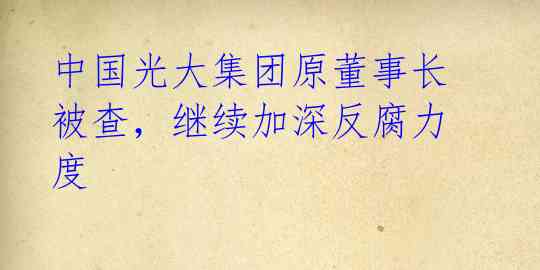 中国光大集团原董事长
被查，继续加深反腐力
度